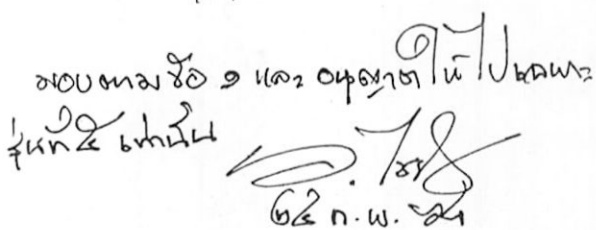 มอบตามข้อ ๑ และ อนุญาตให้ไปเฉพาะ
รุ่นที่ ๕ เท่านั้น
๒๕ ก.พ.